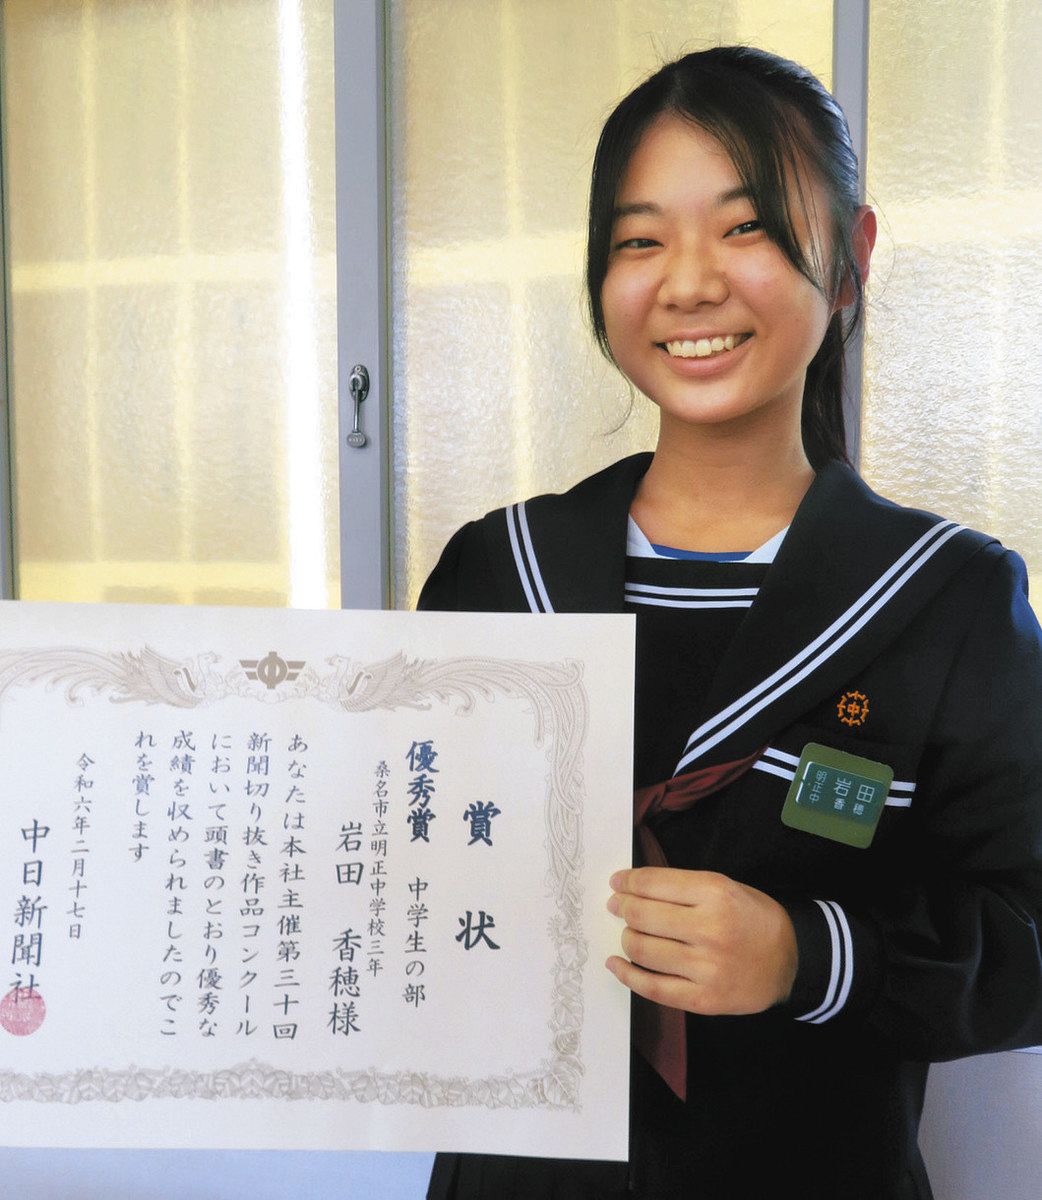 賞状
優秀賞 中学生の部
桑名市立明正中学校三年
岩田 香穂様
あなたは本社主催第三十回
新聞切り抜き作品コンクール
において頭書のとおり優秀な
成績を収められましたのでこ
れを賞します
令和六年二月十七日
中日新聞社
中
中
明正中
岩田
香穂